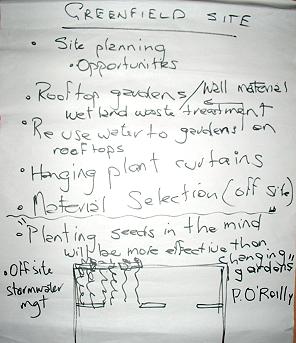 GREENFIELD SITE
• Site planning
• Opportunites
• Rooftop gardens / Wall material
wetland waste treatment
• Re use water to gardens on
rooftops
• Hanging plant curtains
• Material Selection (off site)
• "Planting seeds in the mind
will be more effective than
changing
gardens"
P. O'Reilly
• Off site
stormwater
mgt